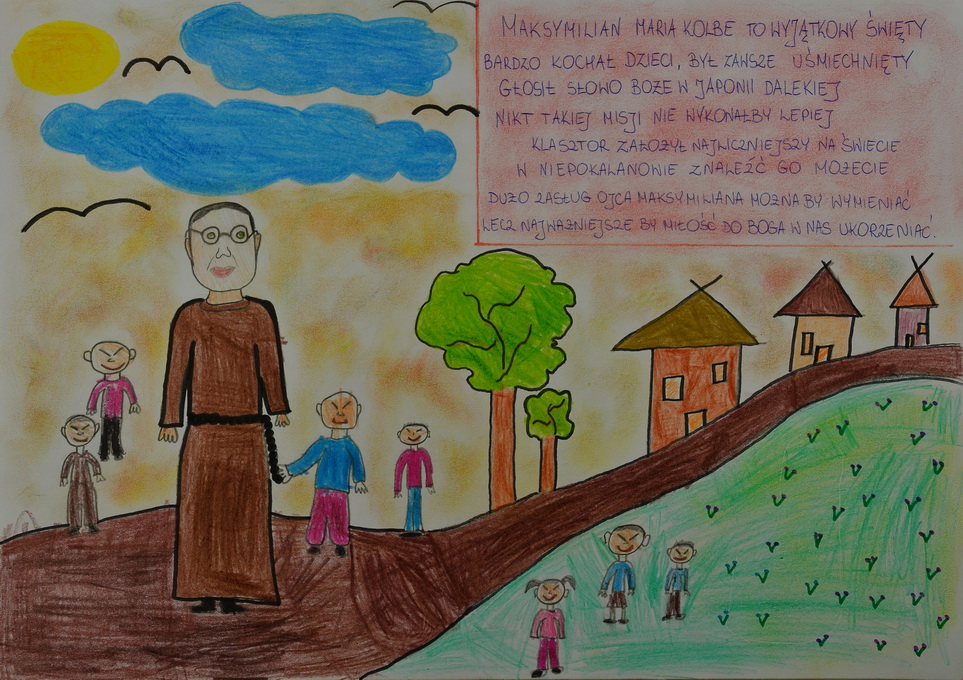 MAKSYMILIAN MARIA KOLBE TO WYJĄTKOWY ŚWIĘTY
BARDZO KOCHAŁ DZIECI, BYŁ ZAWSZE UŚMIECHNIĘTY
GŁOSIŁ SŁOWO BOŻE W JAPONII DALEKIEJ
NIKT TAKIEJ MISJI NIE WYKONAŁBY LEPIEJ
KLASZTOR ZAŁOŻYŁ NAJLICZNIEJSZY NA ŚWIECIE
W NIEPOKALANOWIE ZNALEŹĆ GO MOŻECIE
DUŻO ZASŁUG OJCA MAKSYMILIANA MOŻNA BY WYMIENIAĆ
LECZ NAJWAŻNIEJSZE BY MIŁOŚĆ DO BOGA W NAS UKORZENIAĆ.